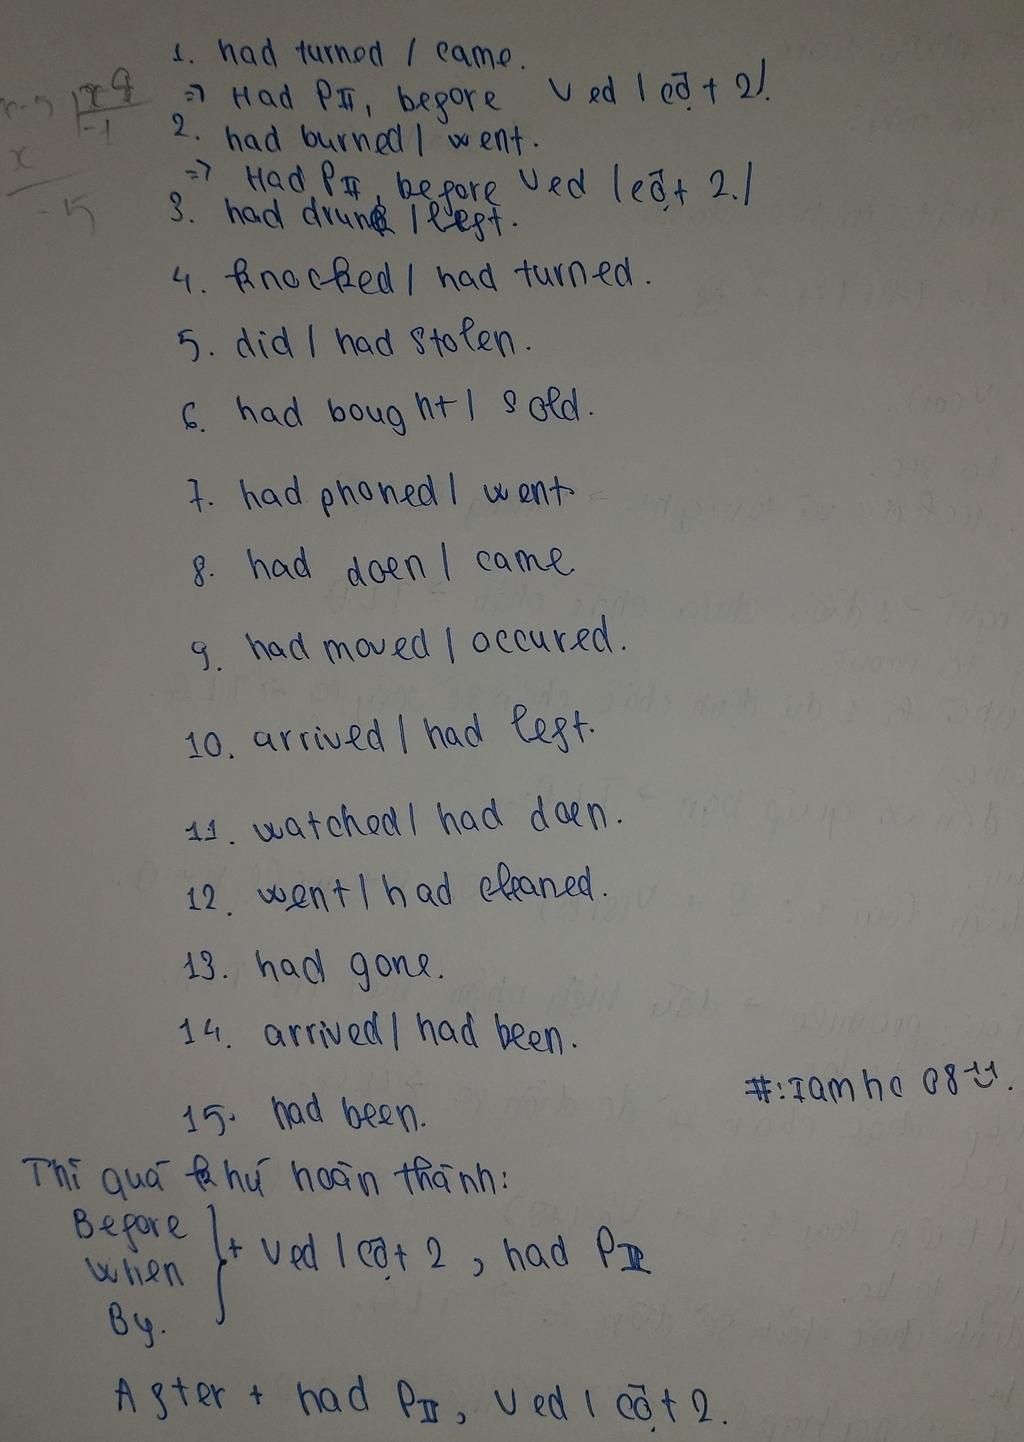 1. had turned / came.
=> Had PII, before Ved / cột 2/.
2. had burned / went.
=> Had PII, before Ved / cột 2./
3. had drunk / left.
4. knocked / had turned.
5. did / had stolen.
6. had bought / sold.
7. had phoned / went.
8. had doen / came
9. had moved / occured.
10. arrived / had left.
11. watched / had doen.
12. went / had cleaned.
13. had gone.
14. arrived / had been.
#:Iamhc 08
15. had been.
Thì quá khứ hoàn thành:
Before
When
By.
+ Ved / cột 2, had PII
After + had PII, Ved / cột 2.